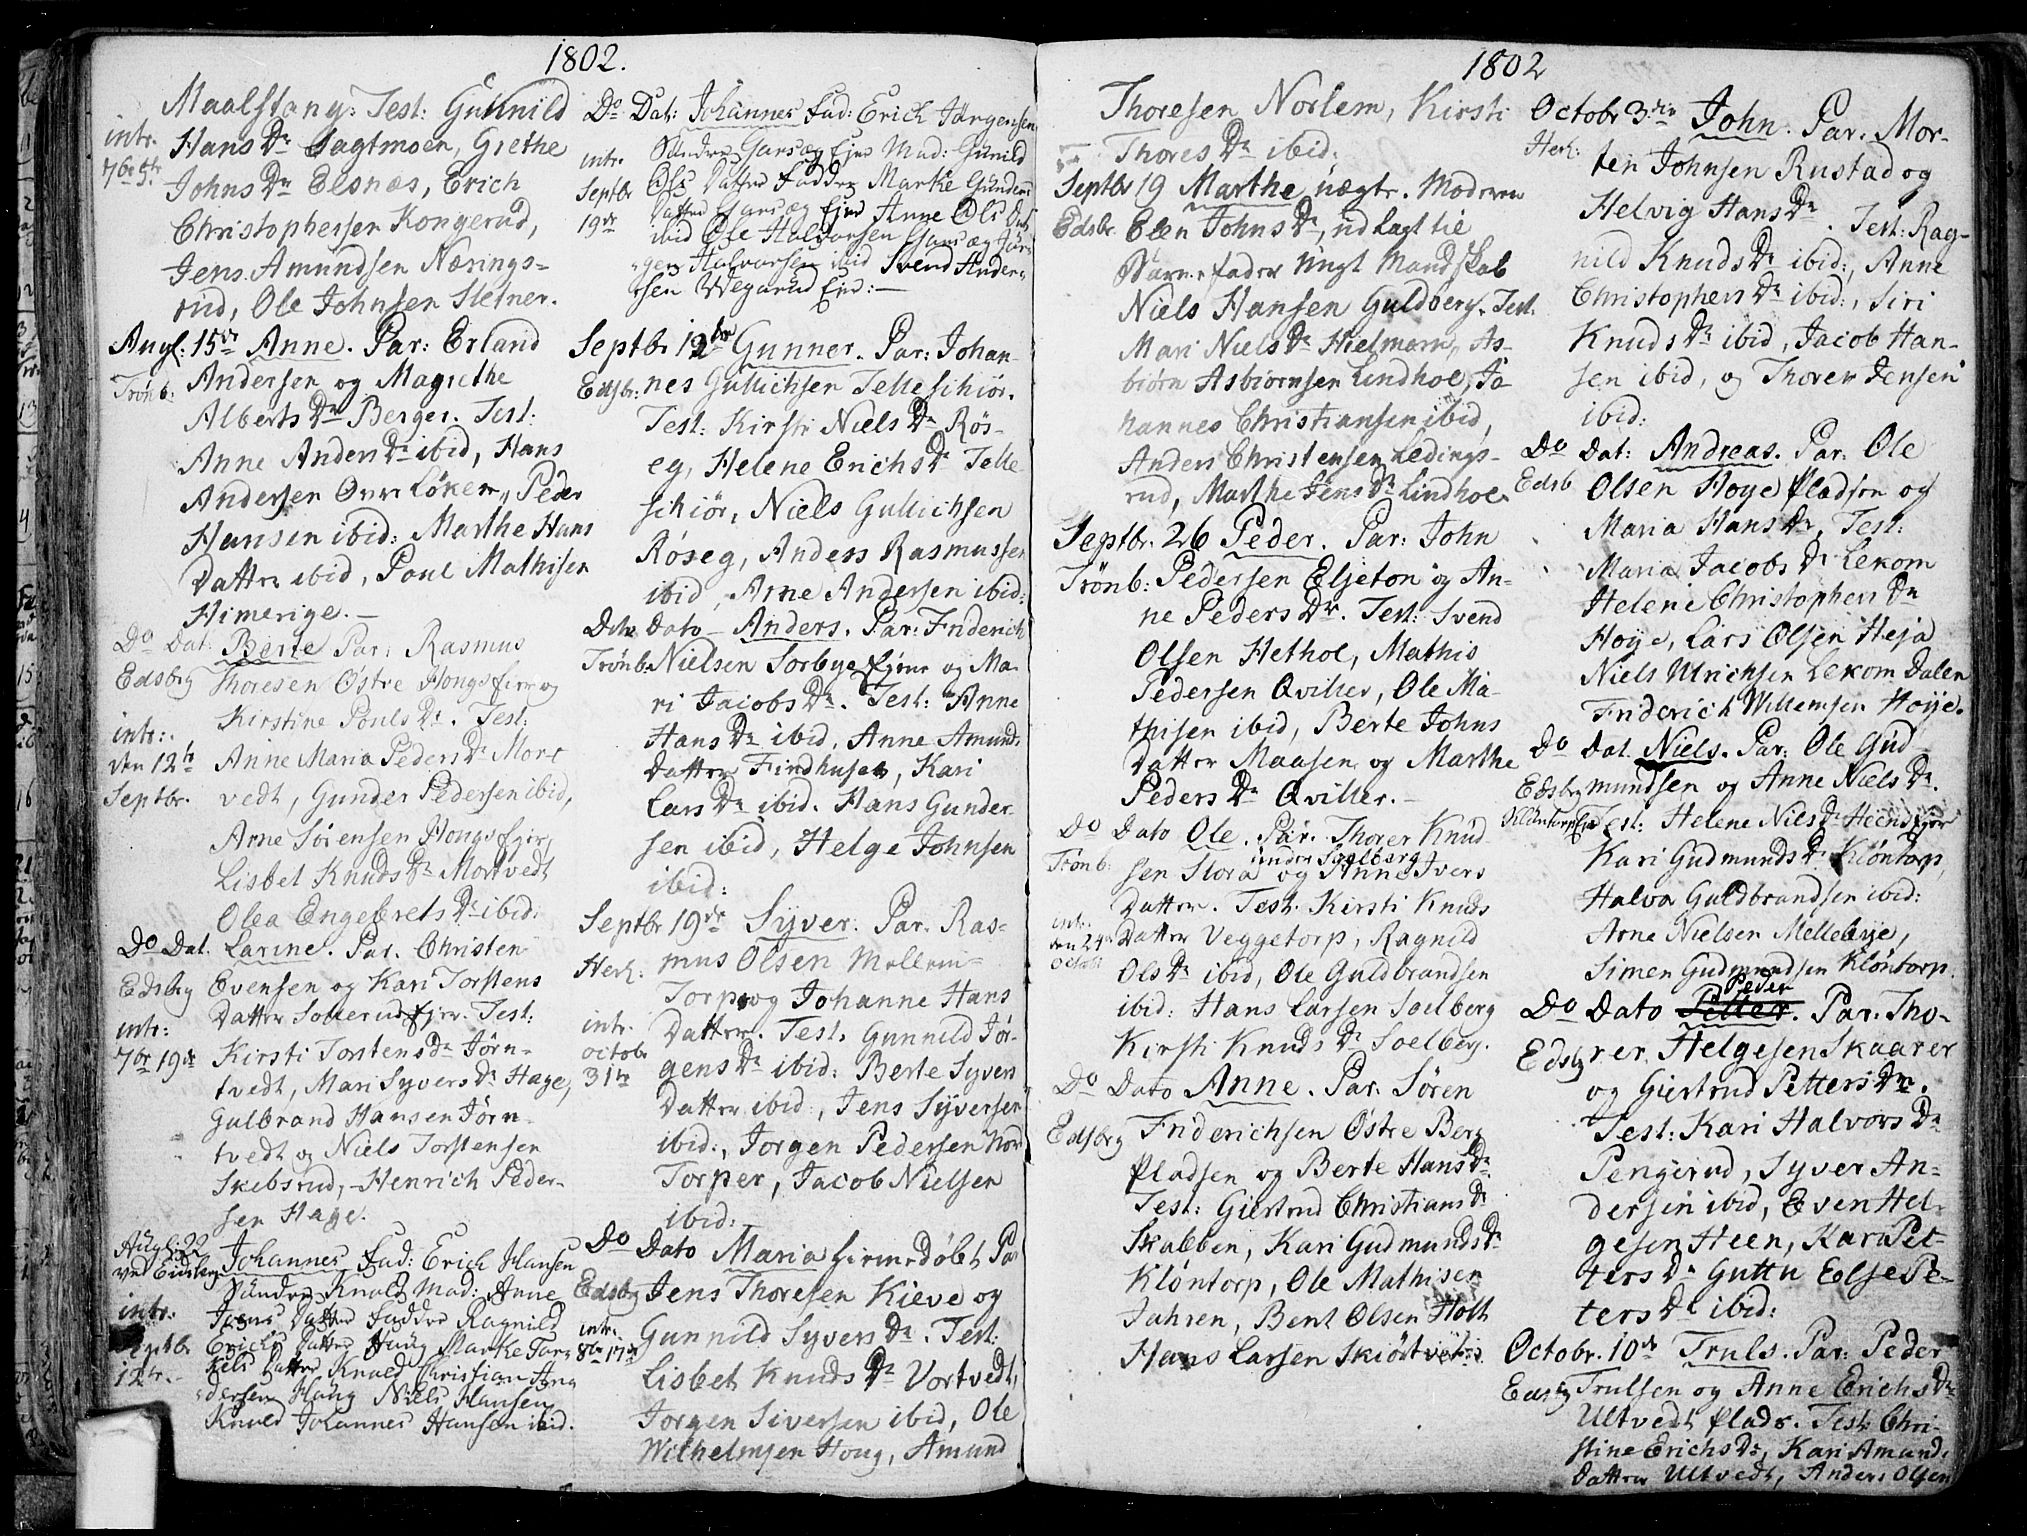 1802.
Maalstang: Test: Gunnild
intr. Hans Dr Sagtmoen, Grethe
7br 5te Johns Dr Elsnæs, Erich
Christophersen Kongerud,
Jens Amundsen Nærings-
rud, Ole Johnsen Sletner.
Augl: 15de Anne. Par: Erland
Trönb: Andersen og Magrethe
Alberts Dr Berger. Test:
Anne Anders Dr ibid, Hans
Andersen Öwr Löken, Peder
Hansen ibid: Marthe Hans
Datter ibid, Poul Mathisen
Himerige. —
Do Dat: Berte Par: Rasmus
Edsbrg Thoresen Östre Hongsejer og
Kirstine Pouls Dr. Test:
intr: Anne Maria Peders Dr Mort
den 12te vedt, Gunder Pedersen ibid,
Septbr. Arne Sörensen Hongsejer,
Lisbet Knuds Dr Mortvedt
Olea Engebrets Dr ibid.
Do Dat. Larine. Par. Christen
Edsbrg Evensen og Kari Torstens
Datter Solleruds ejer. Test:
intr: Kirsti Torstens Dr Jörn-
7br 19de tvedt, Mari Syvers Dr Hage,
Gulbrand Hansen Jörn-
tvedt og Niels Torstensen
Skebsrud, Henrich Peder-
sen Hage.
Augl: 22 Johannes Fad: Erich Hansen
ved Eidsberg Söndre Knold Mod: Anne
intr. Jens Datter Faddre Ragnild
Septbr Erichs Datter Haug Marthe Tor-
12te. kels Datter Knold Christian An-
dersen Haug Niels Hansen
Knold Johannes Hansen ibid.
Do Dat: Johannes Fad: Erich Jörgensen
intr. Söndre Garsæg Ejer Mod: Gunild
Septbr Ols Datter Faddre Marthe Gunders
19de Datter Garsæg Ejer Anne Ols Dat.
ibid Ole Halvorsen Garsæg Jör-
gen Halvorsen ibid Svend Ander-
sen Wegarud Ejer: —
Septbr 12te Gunner. Par: Johan-
Edsbr: nes Gullichsen Telleschiör.
Test: Kirsti Niels Dr Rös-
eg, Helene Erichs Dr Telle
schiör, Niels Gullichsen
Röseg, Anders Rasmussen
ibid, Arne Andersen ibid:
Dito Dato — Anders. Par: Friderich
Trönb: Nielsen Sorbye ejer og Ma-
ri Jacobs Dr. Test: Anne
Hans Dr ibid, Anne Amunds
Datter Findhuset, Kari
Lars Dr ibid. Hans Gunder-
sen ibid, Helge Johnsen
ibid:
Septbr 19de Syver. Par. Ras-
Herl: mus Olsen Mellem-
Torp og Johanne Hans
intr. Datter. Test. Gunnild Jör-
octobr gens Dr ibid: Berte Syvers
31te Datter ibid:, Jens Syversen
ibid:, Jorgen Pedersen Nord
Torper, Jacob Nielsen
ibid:
Do Dato Maria hiemedöbt Par
Edsbrg Jens Thoresen Kieve og
intr. Gunnild Syvers Dr. Test:
8br 17de Lisbet Knuds Dr Vortvedt,
Jorgen Siversen ibid, Ole
Wilhelmsen Houg, Amund
1802
Thoresen Norlem, Kirsti
Thores Dr ibid:
Septbr 19 Marthe uægte. Moderen
Edsbr. Elen Johns Dr, udlagt til
Barnefader ungt Mandskab
Niels Hansen Guldberg. Test.
Mari Niels Dr Hielmark, As-
biörn Asbiörnsen Lindhol, Jo
hannes Christiansen ibid,
Anders Christensen Ledings-
rud, Marthe Jens Dr Lindhol.
Septbr. 26 Peder. Par: John
Trönb: Pedersen Eljeton og An-
ne Peders Dr. Test: Svend
Olsen Hethol, Mathis
Pedersen Qviller, Ole Ma-
thisen ibid, Berte Johns
Datter Maasen og Marthe
Peders Dr Qviller. —
Do Dato Ole. Par. Thorer Knud
Trönb: sen Slora under Soelberg og Anne Ivers
Datter. Test. Kirsti Knuds
intr. Datter Veggetorp, Ragnild
den 24de Ols Dr ibid, Ole Guldbrandsen
Octobr ibid: Hans Larsen Soelberg
Kirsti Knuds Dr Soelberg.
Do Dato Anne. Par. Sören
Edsbrg Friderichsen Östre Berg
pladsen og Berte Hans Dr
Test: Giertrud Christians Dr
Skabben, Kari Gudmunds Dr
Klöntorp, Ole Mathisen
Jahren, Bent Olsen Holt
Hans Larsen Skiörtvet
Octobr 3die John. Par. Mor-
Herl: ten Johnsen Rustad og
Helvig Hans Dr. Test: Rag-
nild Knuds Dr ibid:, Anne
Christophers Dr ibid:, Siri
Knuds Dr ibid, Jacob Han-
sen ibid, og Thorer Jensen
ibid:
Do Dat: Andreas. Par. Ole
Edsb Olsen Hoye pladsen og
Maria Hans Dr, Test:
Maria Jacobs Dr Lekom
Helene Christophers Dr
Hoye, Lars Olsen Heja
Niels Ulrichsen Lekom Dalen
Friderich Willemsen Hoye.
Do Dat. Niels. Par: Ole Gud
Edsbrg mundsen og Anne Niels Dr.
Test: Helene Niels Dr Heensejer
Kari Gudmunds Dr Klöntorp,
Halvo Guldbrandsen ibid:
Arne Nielsen Mellebye,
Simen Gudmundsen Klöntorp.
Peder
Do Dato Petter. Par. Tho-
Edsbg rer. Helgesen Skaarer
og Giertrud Petters Dr.
Test: Kari Halvors Dr
Pengerud, Syver An-
dersen ibid, Even Hel-
gesen Heen, Kari Pet-
ters Dr Guttu Eelse Pe-
ters Dr ibid:
Octobr. 10de Truls. Par: Peder
Edsbg Trulsen og Anne Erichs Dr
Ultvedt plads. Test. Chri-
stine Erichs Dr, Kari Amunds
Datter Ultvedt, Anders Olsen